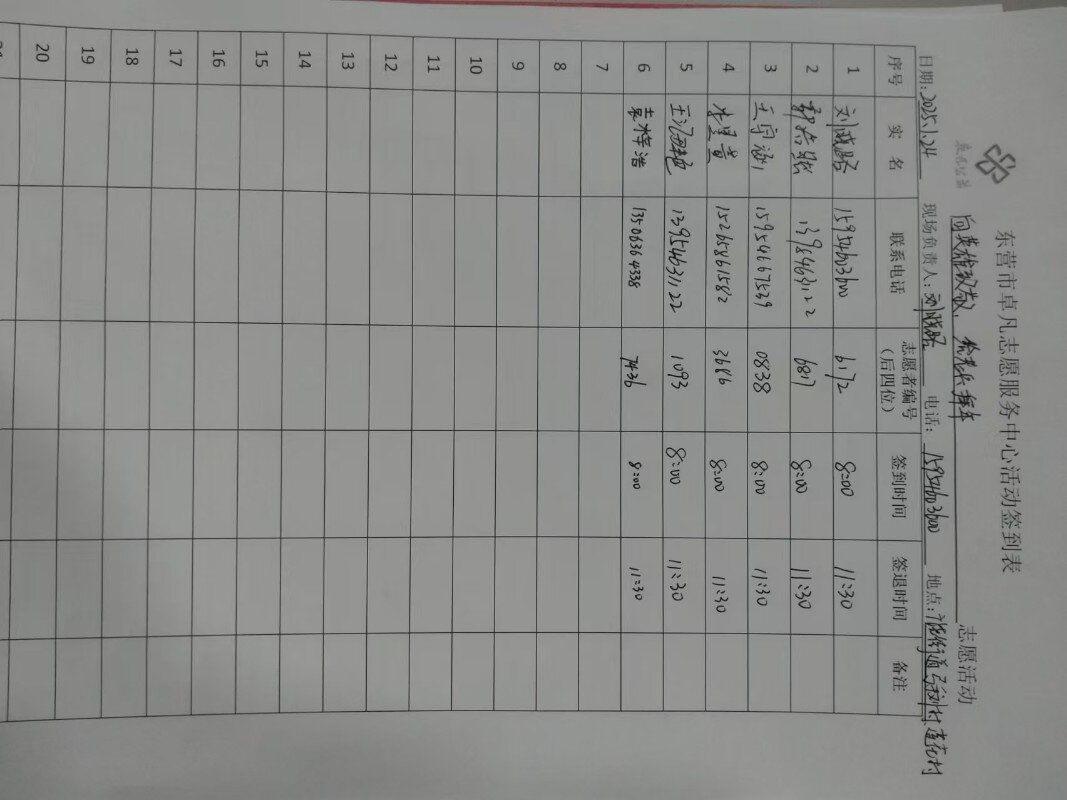 东营市卓凡志愿服务中心活动签到表
向英雄致敬、 志愿活动
日期:2025.1.24 现场负责人:刘晓璐 电话:15954603600 地点:
序号 实名 联系电话 志愿者编号(后四位) 签到时间 签退时间 备注
1 刘晓璐 15954603600 6172 8:00 11:30
2 13984631122 6817 8:00 11:30
3 王宇涵 15954667539 0838 8:00 11:30
4 15265861582 3686 8:00 11:30
5 13954631122 1093 8:00 11:30
6 袁梓浩 13506364338 7436 8:00 11:30
7
8
9
10
11
12
13
14
15
16
17
18
19
20
21